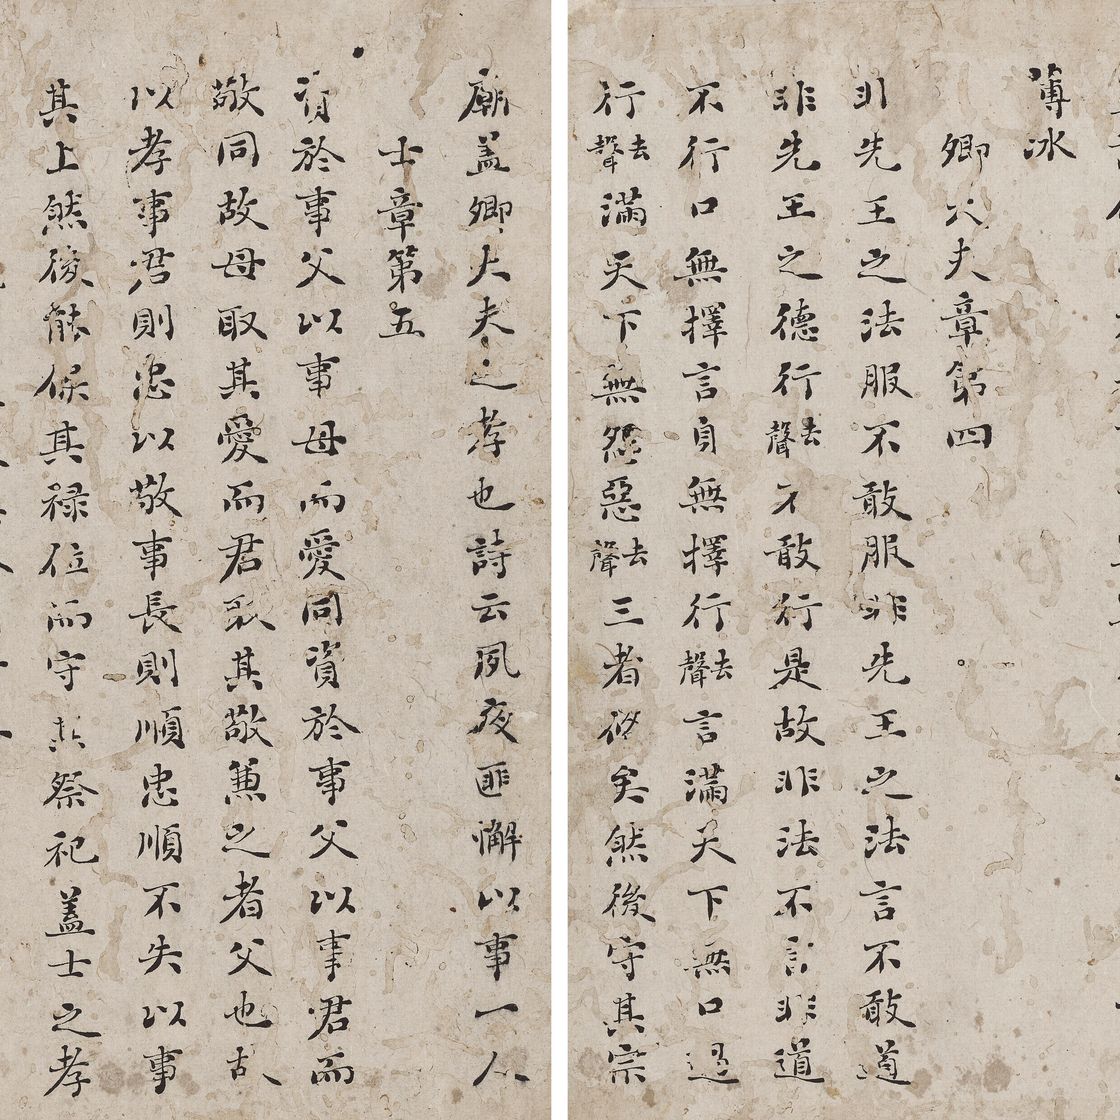 薄冰
卿大夫章第四
非先王之法服不敢服非先王之法言不敢道
非先王之德行去聲不敢行是故非法不言非道
不行口無擇言身無擇行去聲言滿天下無口過
行去聲滿天下無怨惡去聲三者俻矣然後守其宗
廟盖卿大夫之孝也詩云夙夜匪懈以事一人
士章第五
資於事父以事母而愛同資於事父以事君而
敬同故母取其愛而君取其敬兼之者父也故
以孝事君則忠以敬事長則順忠順不失以事
其上然後能保其禄位而守其祭祀盖士之孝